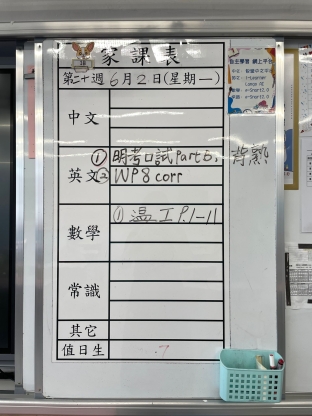 家課表
第二十週 6月2日(星期一)
中文
英文
① 明考口試 Part B, 背熟
② WP8 corr
數學
① 温工 P.1-11
常識
其它
值日生